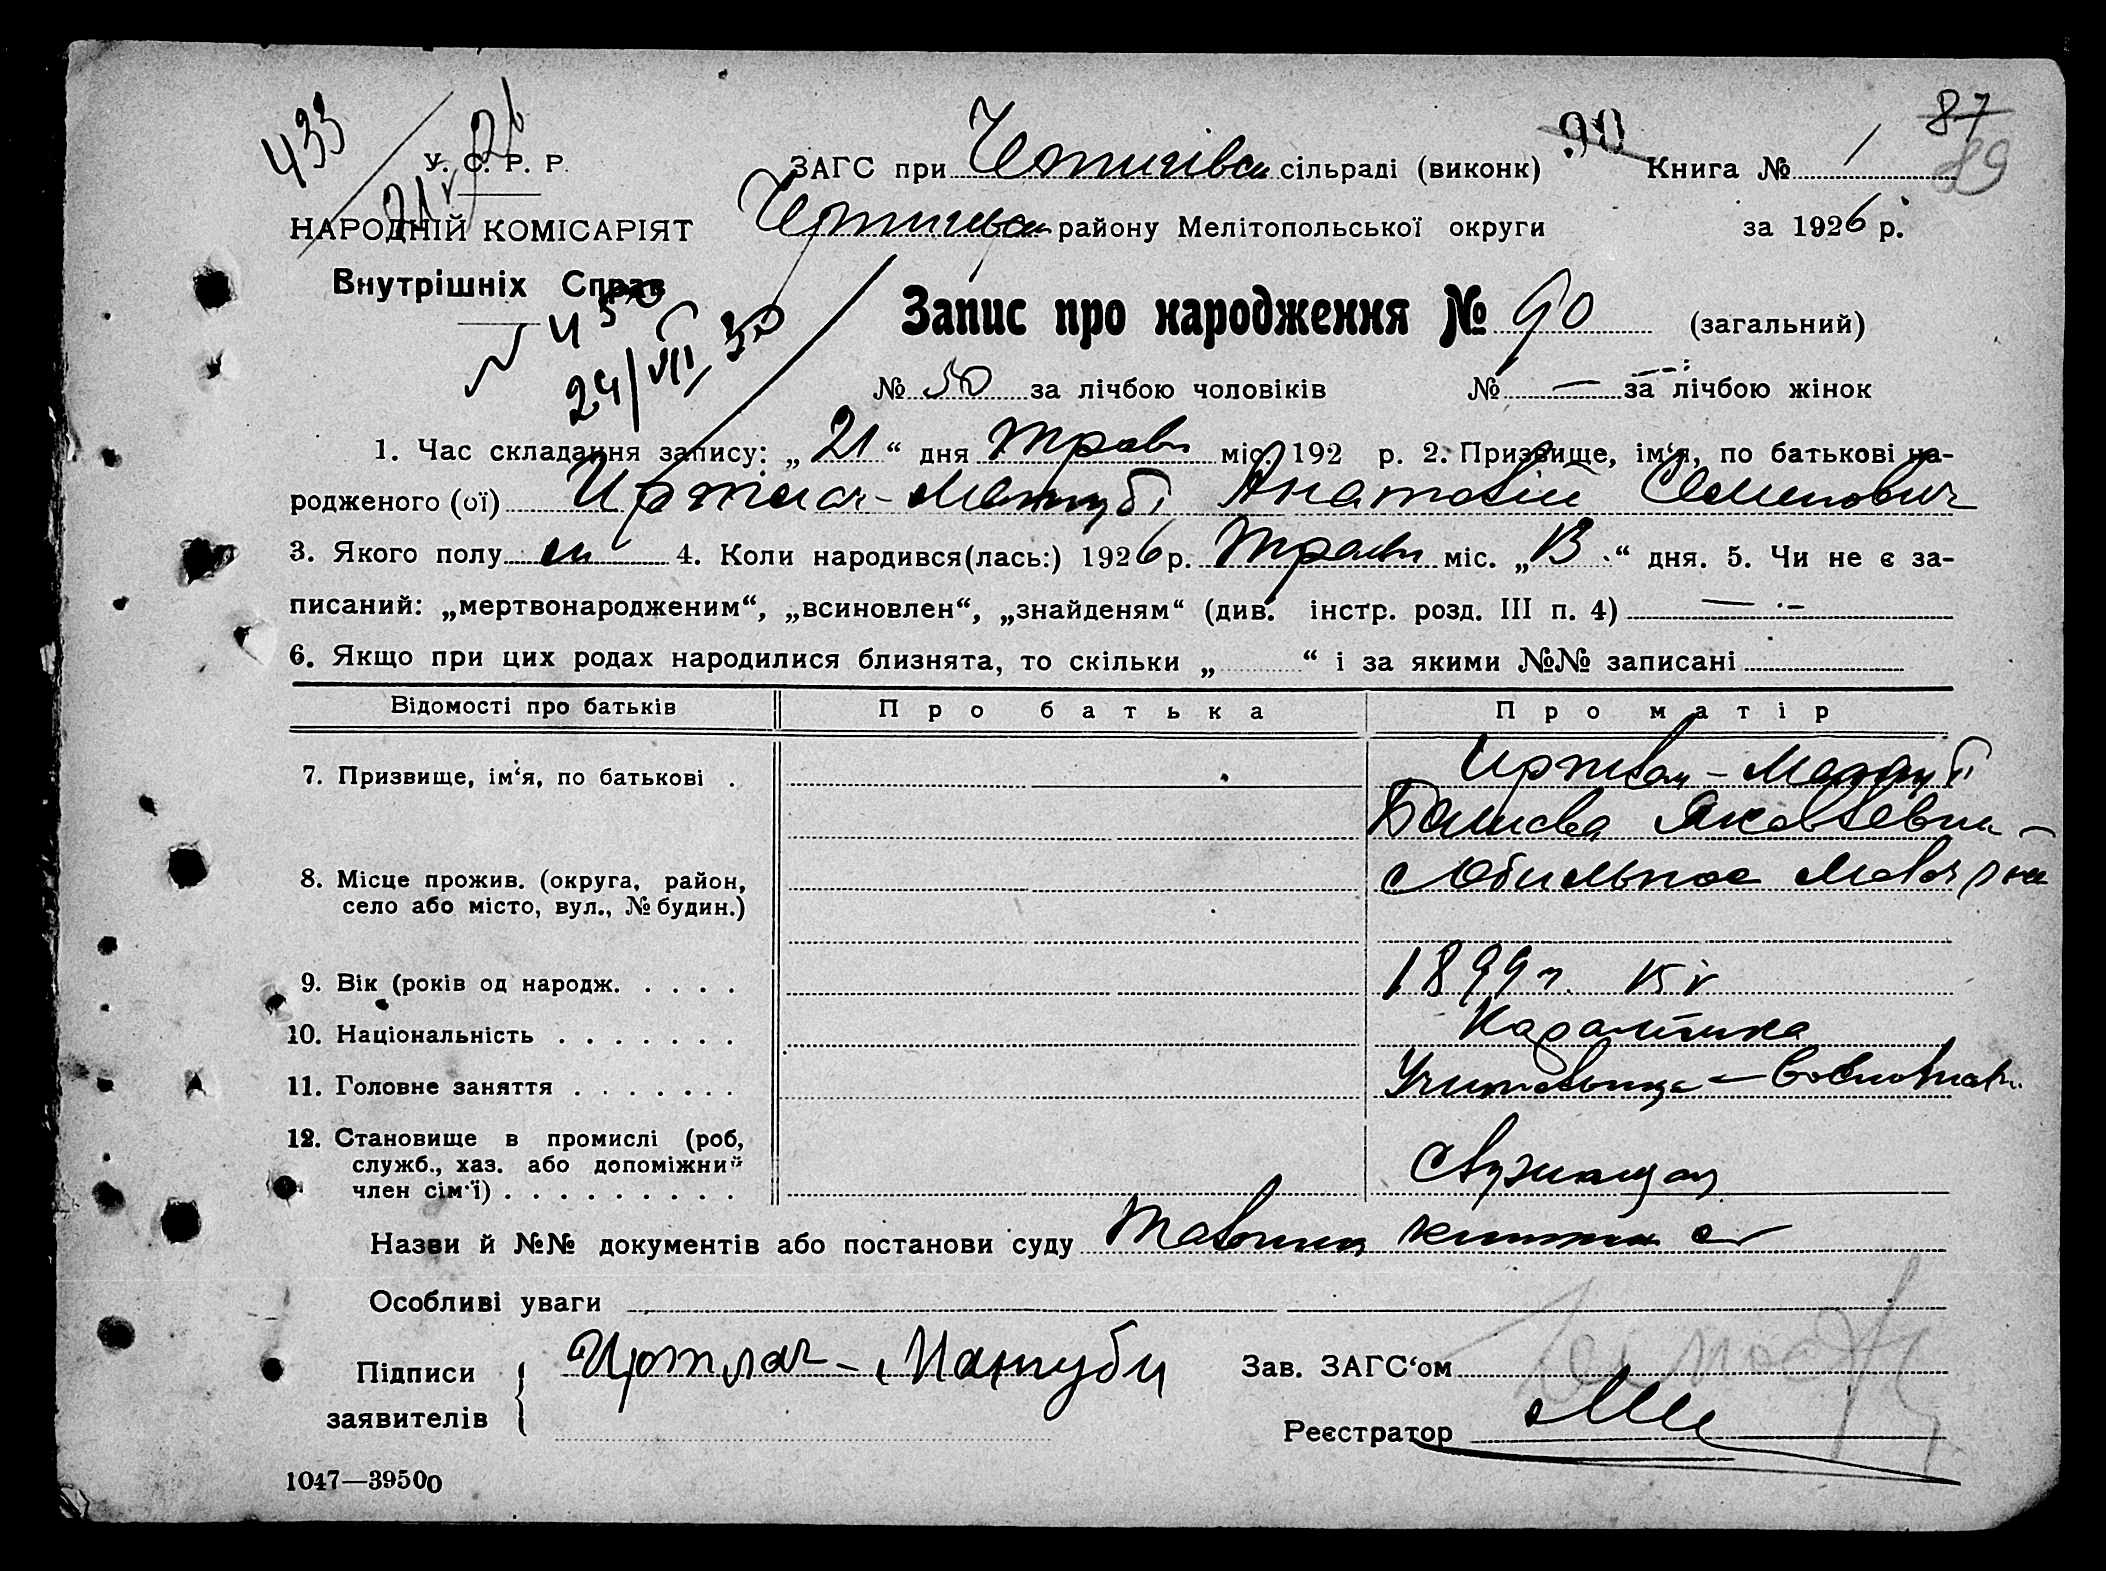 433
У. С. Р. Р.
НАРОДНІЙ КОМІСАРІЯТ
Внутрішніх Справ
24/VII 30
ЗАГС при сільраді (виконк)
90
Книга № 1
87
89
району Мелітопольської округи за 1926 р.
Запис про народження № 90 (загальний)
№ 50 за лічбою чоловіків № — за лічбою жінок
1. Час складання запису: „21“ дня травн міс. 192 р. 2. Призвище, ім‘я, по батькові на-
родженого (ої) Иртлач-Мангубі Анатолій Семенович
3. Якого полу 4. Коли народився(лась:) 1926 р. травн міс. „13“ дня. 5. Чи не є за-
писаний: „мертвонародженим“, „всиновлен“, „знайденям“ (див. інстр. розд. III п. 4) —
6. Якщо при цих родах народилися близнята, то скільки „ “ і за якими №№ записані
Відомості про батьків Про батька Про матір
7. Призвище, ім‘я, по батькові . Иртлач-Мангубі
Яковлевна
8. Місце прожив. (округа, район, с Обильное
село або місто, вул., № будин.)
9. Вік (років од народж. . . . . 1899 г.
10. Національність . . . . . . .
11. Головне заняття . . . . . . . Учительница
12. Становище в промислі (роб,
служб., хаз. або допоміжний Служащая
член сім‘ї) . . . . . . . . .
Назви й №№ документів або постанови суду
Особливі уваги
Підписи
заявителів
Иртлач-Мангуби
Зав. ЗАГС‘ом
Реєстратор
1047—39500